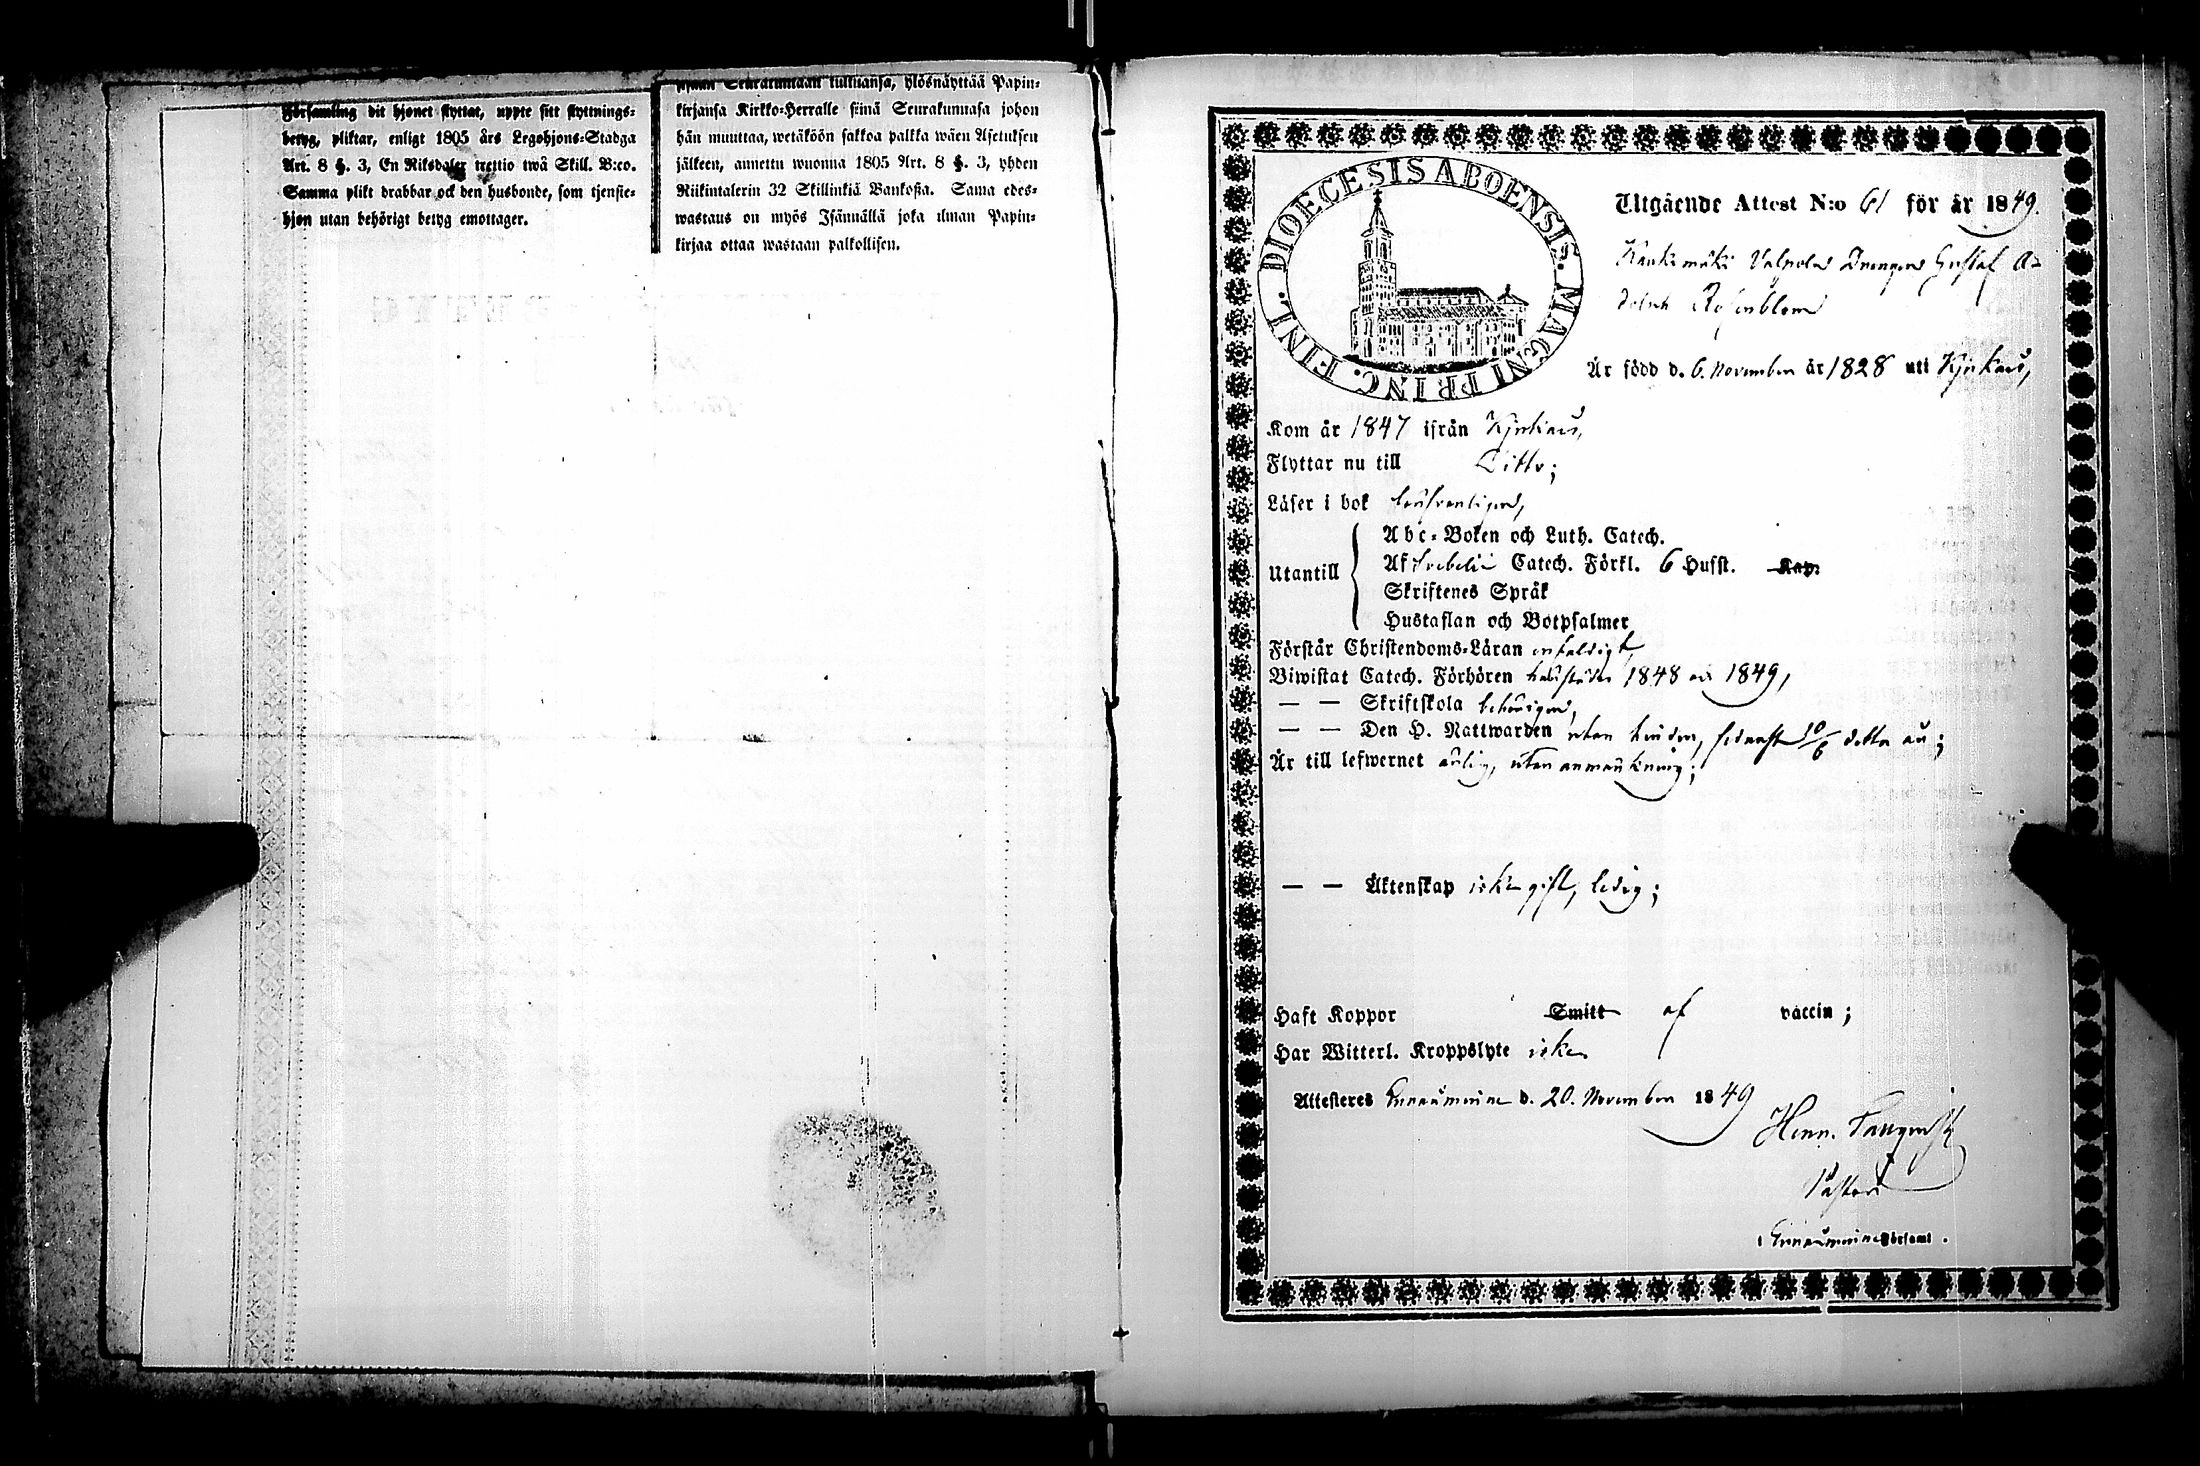 Församling dit hjonet flyttat, uppte sitt flyttnings-
betyg, pliktar, enligt 1805 års Legohjons-Stadga
Art. 8 §. 3, En Riksdaler trettio twå Skill. B:co.
Samma plikt drabbar ock den husbonde, som tjenste-
hjon utan behörigt betyg emottager.
Seurakuntaan tulluansa, ylösnäyttää Papin-
kirjansa Kirkko-Herralle siinä Seurakunnasa johon
hän muuttaa, wetäköön sakkoa palkka wäen Asetuksen
jälkeen, annettu wuonna 1805 Art. 8 §. 3, yhden
Riikintalerin 32 Skillinkiä Bankoßa. Sama edes-
wastaus on myös Isännällä joka ilman Papin-
kirjaa ottaa wastaan palkollisen.
DIOECESIS ABOENSIS. MAGNI PRINC. FINL.
Utgående Attest N:o 61 för år 1849.
Drengen Gustaf A-
dolph Rosenblom
Är född d. 6. November år 1828 uti Kjukais,
Kom år 1847 ifrån Kjukais,
Flyttar nu till Ditto;
Läser i bok försvarligen,
Utantill
Abc-Boken och Luth. Catech.
Af Svebelii Catech. Förkl. 6 Husst. Kap.
Skriftenes Språk
Hustaflan och Botpsalmer
Förstår Christendoms-Läran enfaldigt,
Biwistat Catech. Förhören 1848 och 1849,
— — Skriftskola behörigen,
— — Den H. Nattwarden utan hinder, sednast 10/6 detta år;
Är till lefwernet ärlig, utan anmärkning;
— — Äktenskap icke gift, ledig;
Haft Koppor Smitt af vaccin;
Har Witterl. Kroppslyte icke
Attesteres d. 20. November 1849
Henr.
Pastor
Församl.